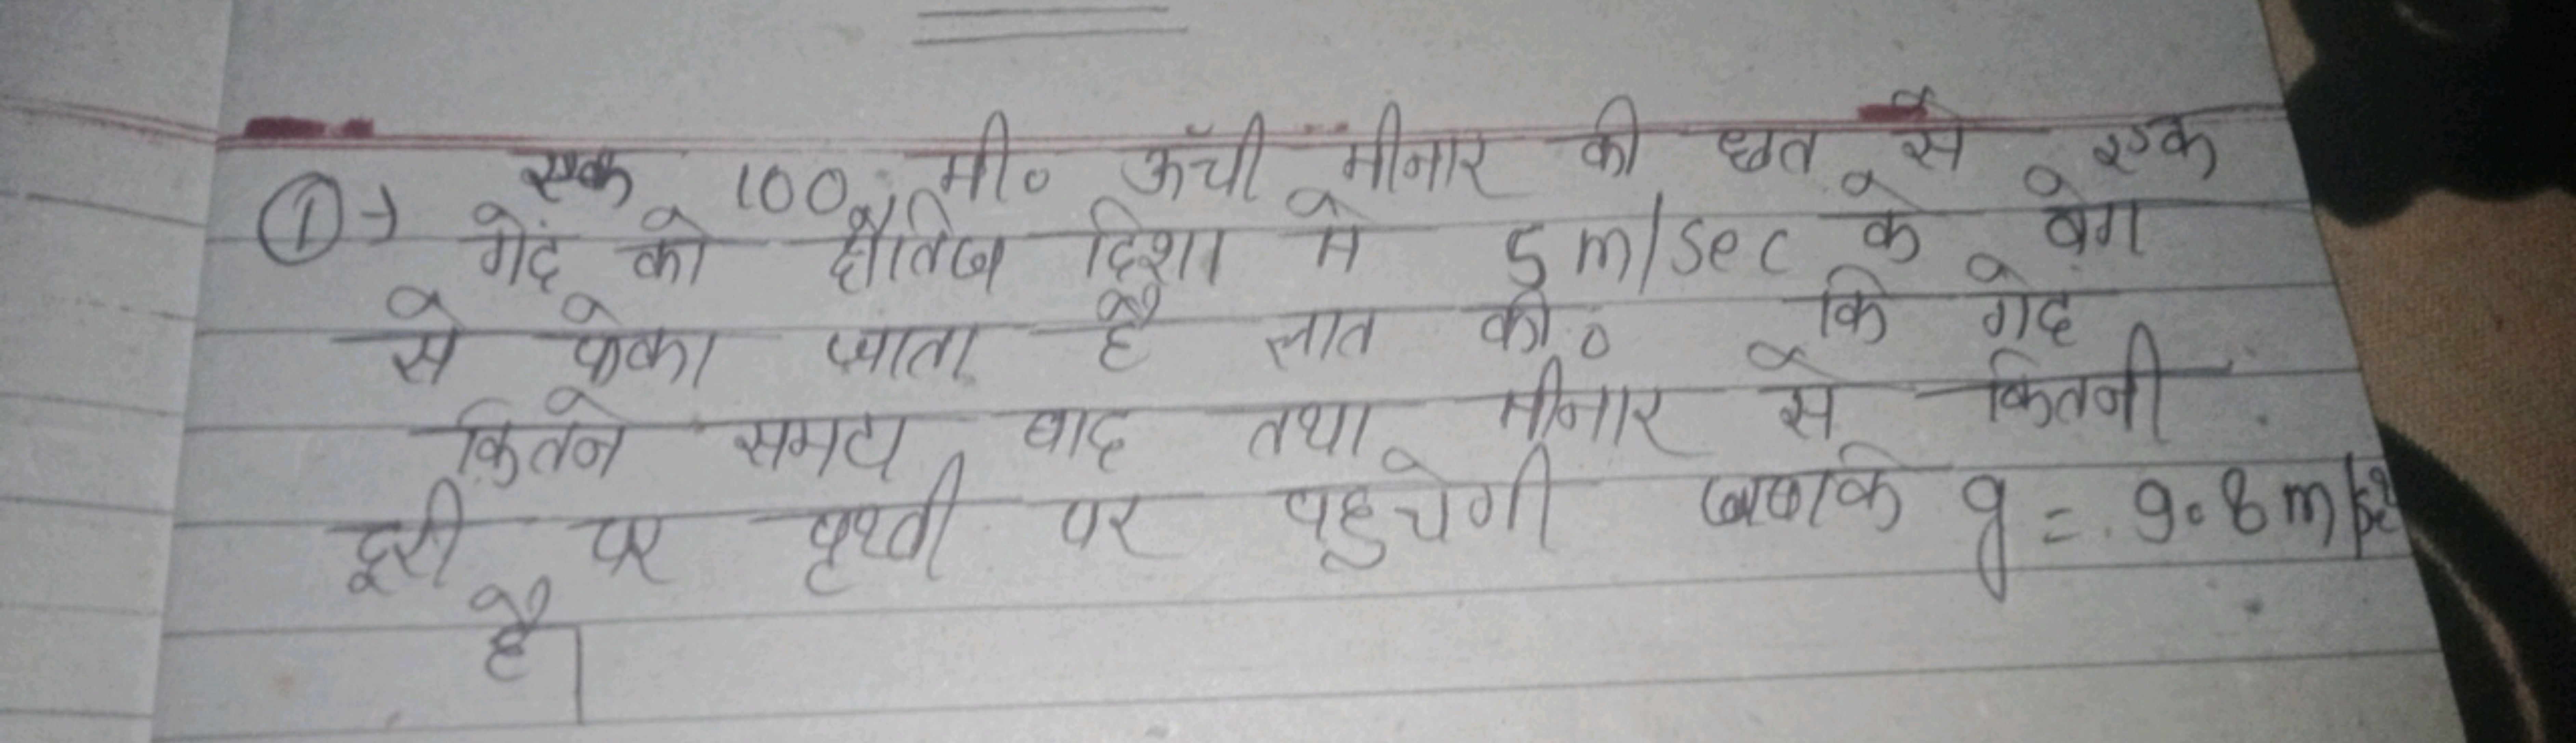 ① → एक 100 मी० ऊँची मीनार की छत से एक
गेंद को क्षैतिज दिशा मे 5 m/sec के वेग
से फेका जाता है ज्ञात की० कि गेद
कितने समय बाद तथा मीनार से कितनी
दूरी पर पृथ्वी पर पहुचेगी जबकि g = 9.8 m/s²
है।